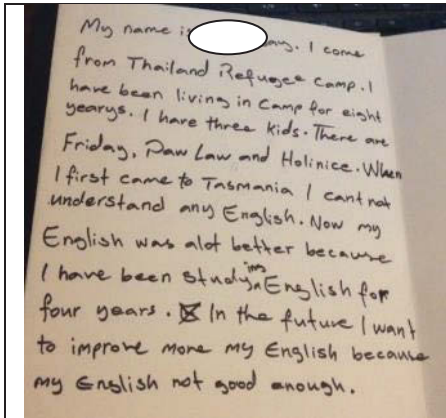 My name is ay. I come
from Thailand Refugee camp. I
have been living in Camp for eight
yearys. I hare three kids. There are
Friday, Paw Law and Holinice. When
I first came to Tasmania I cant not
understand any English. Now my
English was alot better because
I have been studying English for
four years. In the future I want
to improve more my English because
my English not good enough.